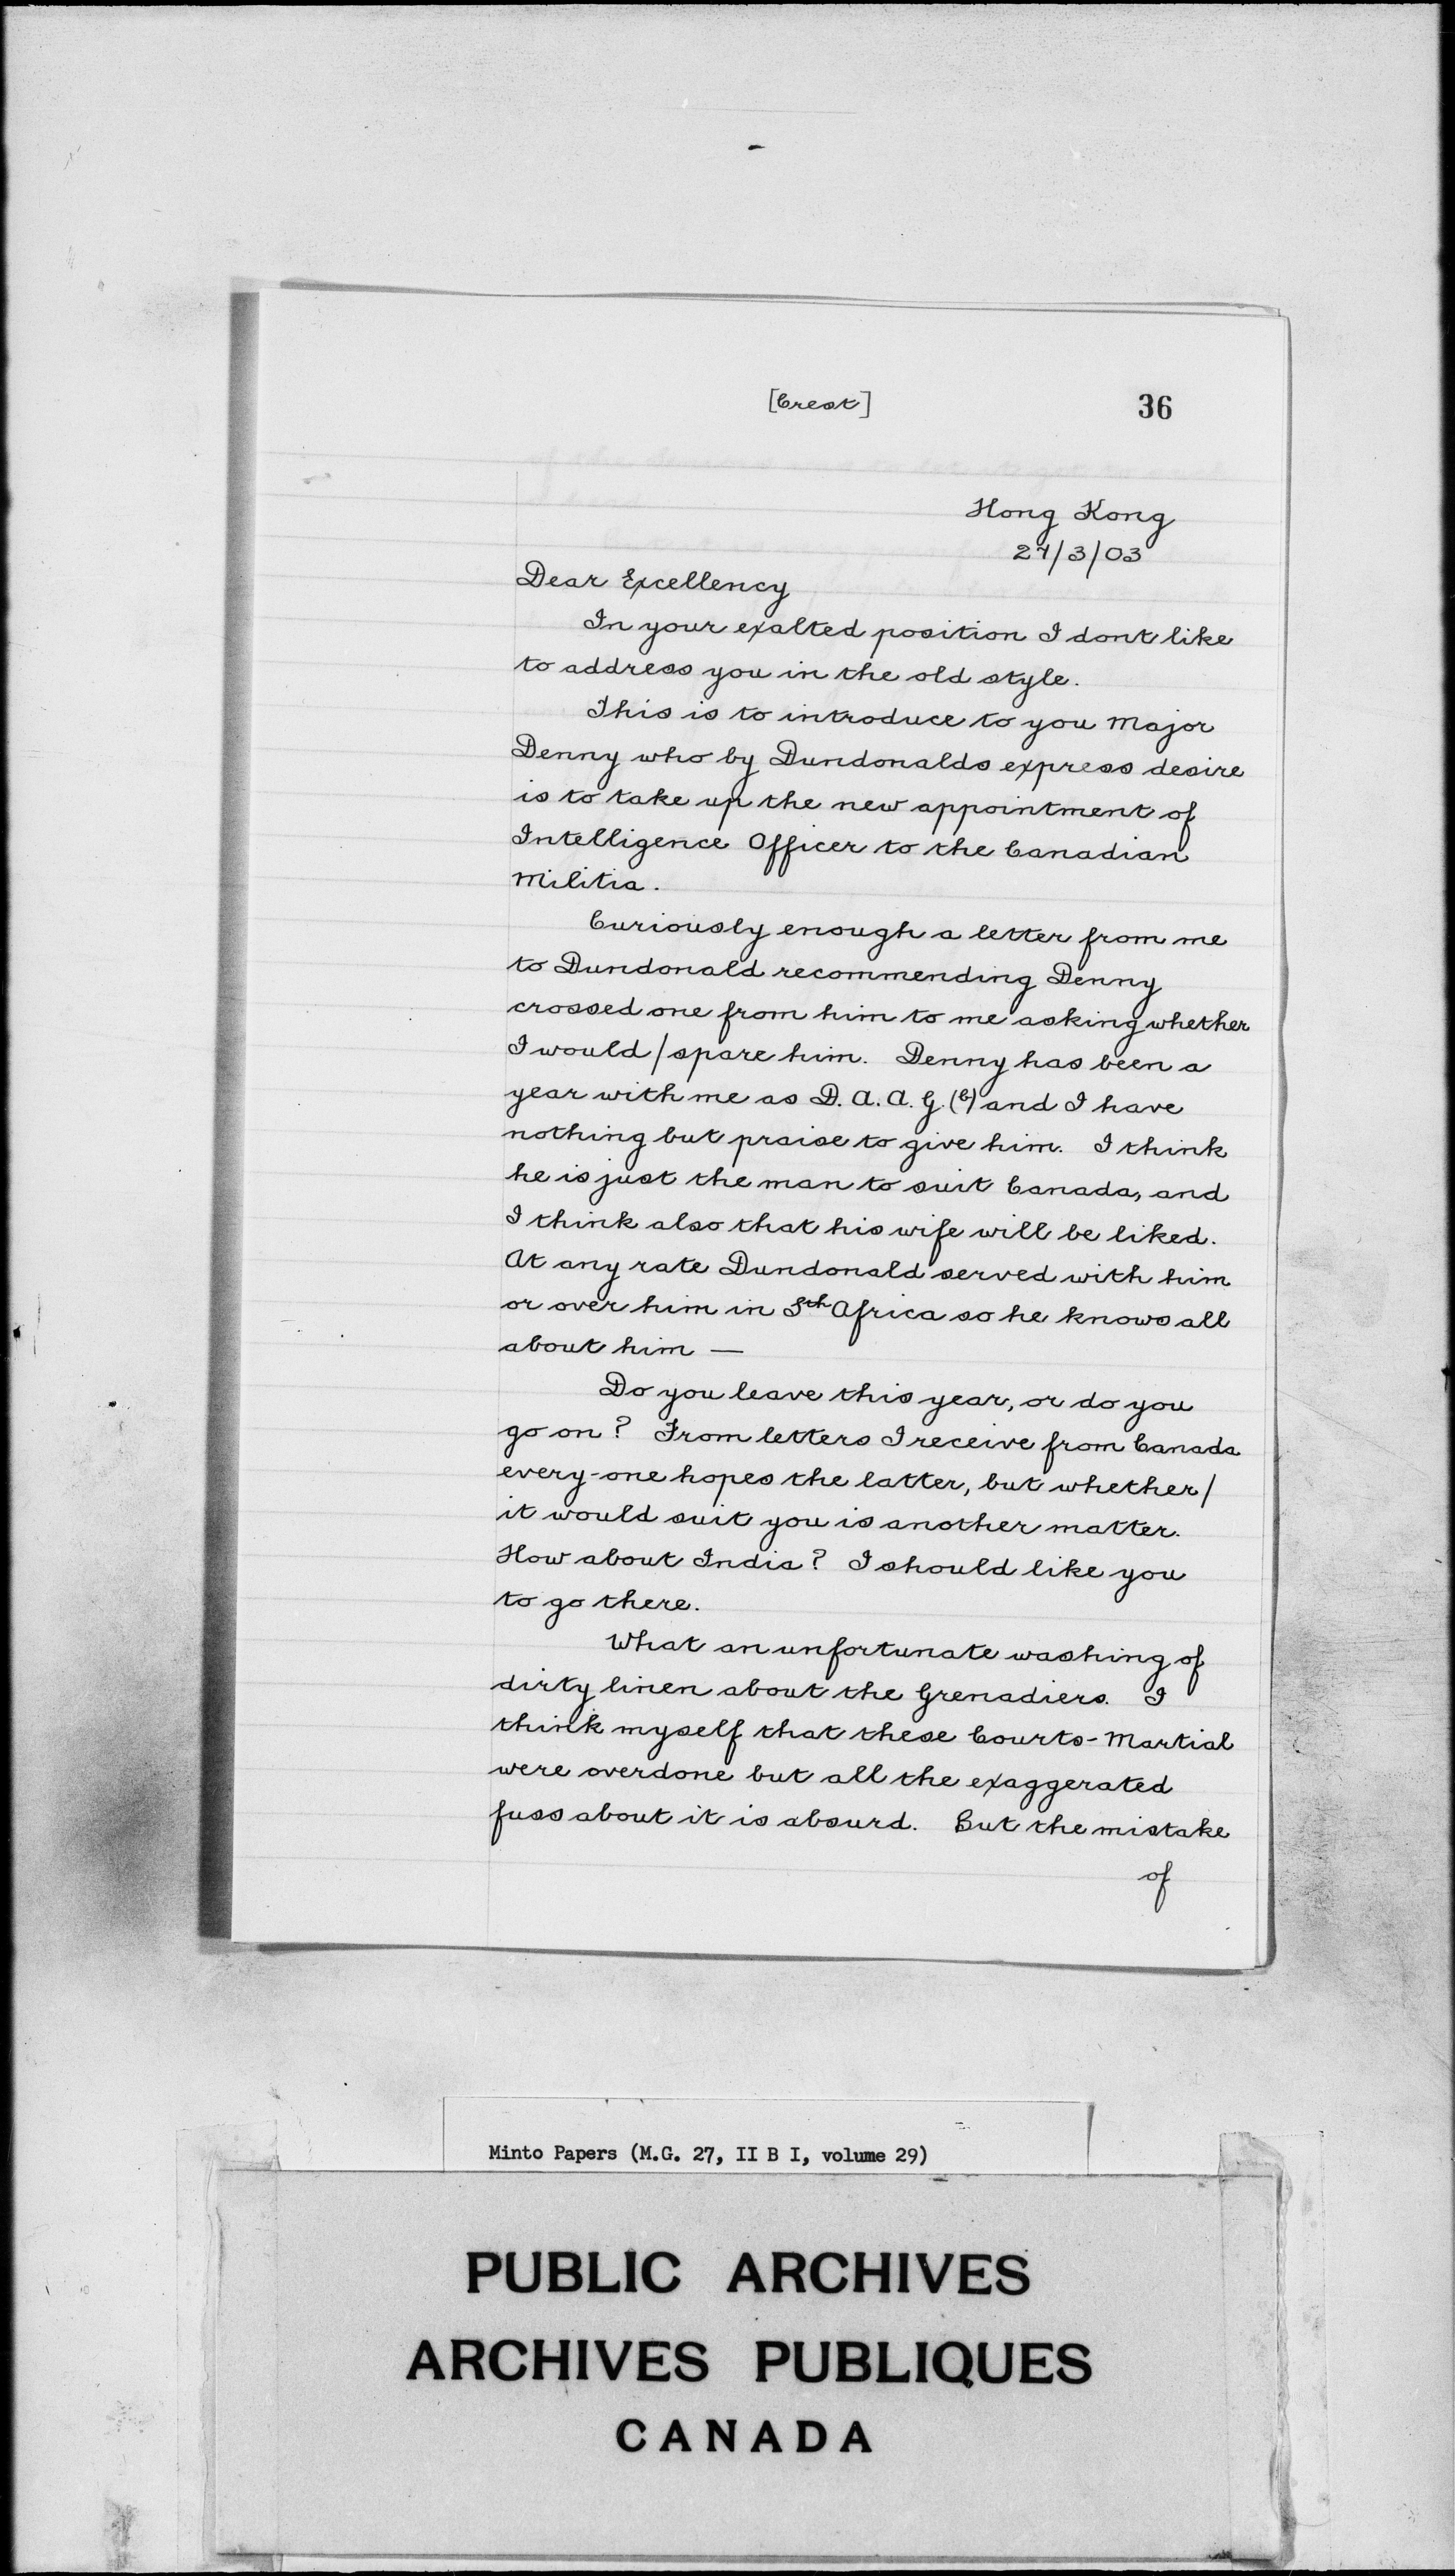 [Crest]
36
Hong Kong
27/3/03
Dear Excellency
In your exalted position I dont like
to address you in the old style.
This is to introduce to you Major
Denny who by Dundonalds express desire
is to take up the new appointment of
Intelligence Officer to the Canadian
Militia.
Curiously enough a letter from me
to Dundonald recommending Denny
crossed one from him to me asking whether
I would / spare him. Denny has been a
year with me as D. A. A. G. (B) and I have
nothing but praise to give him. I think
he is just the man to suit Canada, and
I think also that his wife will be liked.
At any rate Dundonald served with him
or over him in Sth Africa so he knows all
about him —
Do you leave this year, or do you
go on? From letters I receive from Canada
every-one hopes the latter, but whether /
it would suit you is another matter.
How about India? I should like you
to go there.
What an unfortunate washing of
dirty linen about the Grenadiers. I
think myself that these Courts-Martial
were overdone but all the exaggerated
fuss about it is absurd. But the mistake
of
Minto Papers (M.G. 27, II B I, volume 29)
PUBLIC ARCHIVES
ARCHIVES PUBLIQUES
CANADA